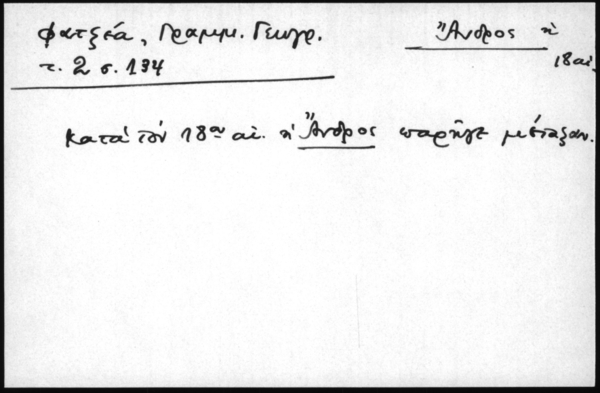 Φατζέα, Γραμμ. Γεωγρ.
τ. 2 σ. 134
Ἄνδρος ἡ
18 αἰ.
Κατὰ τὸν 18ον αἰ. ἡ Ἄνδρος παρῆγε μέταξαν.